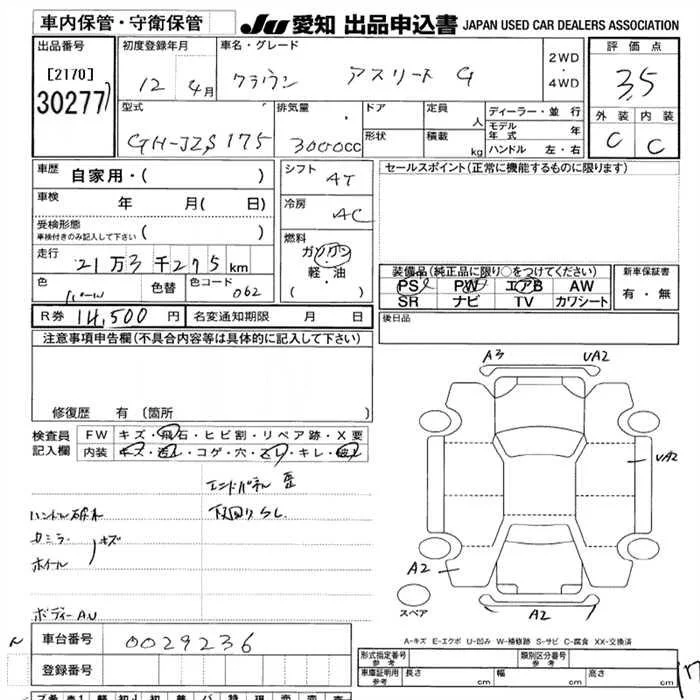 車内保管・守衛保管
JU 愛知 出品申込書 JAPAN USED CAR DEALERS ASSOCIATION
出品番号
[2170]
30277
初度登録年月
12年 4月
車名・グレード
クラウン アスリート G
2WD
・
4WD
評価点
3.5
外装 内装
C C
型式
GH-JZS175
排気量
3000cc
ドア
形状
定員 人
積載 kg
ディーラー・並行
モデル年式 年
ハンドル 左・右
車歴
自家用・( )
車検 年 月( 日)
受検形態
車検付きのみ記入して下さい ( )
走行
21万3千275km
色
パール
色替
色コード
062
シフト
AT
冷房
AC
燃料
ガソリン
軽・油
( )
セールスポイント(正常に機能するものに限ります)
装備品(純正品に限り○をつけてください)
PS PW エアB AW
SR ナビ TV カワシート
新車保証書
有・無
R券 14,500円
名変通知期限 月 日
後日品
注意事項申告欄(不具合内容等は具体的に記入して下さい)
修復歴 有(箇所
検査員
記入欄
FW キズ・飛石・ヒビ割・リペア跡・X要
内装 キズ・汚れ・コゲ・穴・スレ・キレ・破れ
エンドパネル 歪
下回りSし
ハンドル
カミラー
キズ
ホイール
ボディーAU
A3
UA2
UA2
A2
A2
スペア
A-キズ E-エクボ U-凹み W-補修跡 S-サビ C-腐食 XX-交換済
車台番号
0029236
登録番号
形式指定番号
参考
類別区分番号
参考
車庫証明用
参考
長さ cm
幅 cm
高さ cm